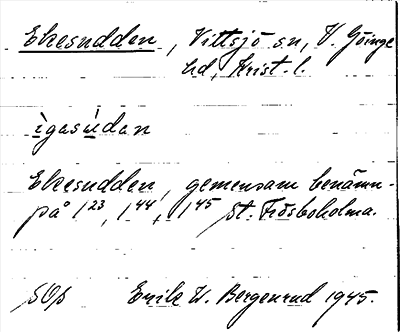 Ekesudden, Vittsjö sn, V. Göinge
hd, Krist. l.
ìgasùdan
Ekesudden, gemensam benämn-
på 1²³, 1⁴⁴, 1⁴⁵ St. Frösboholma.
SOp Erik W. Bergenrud 1945.